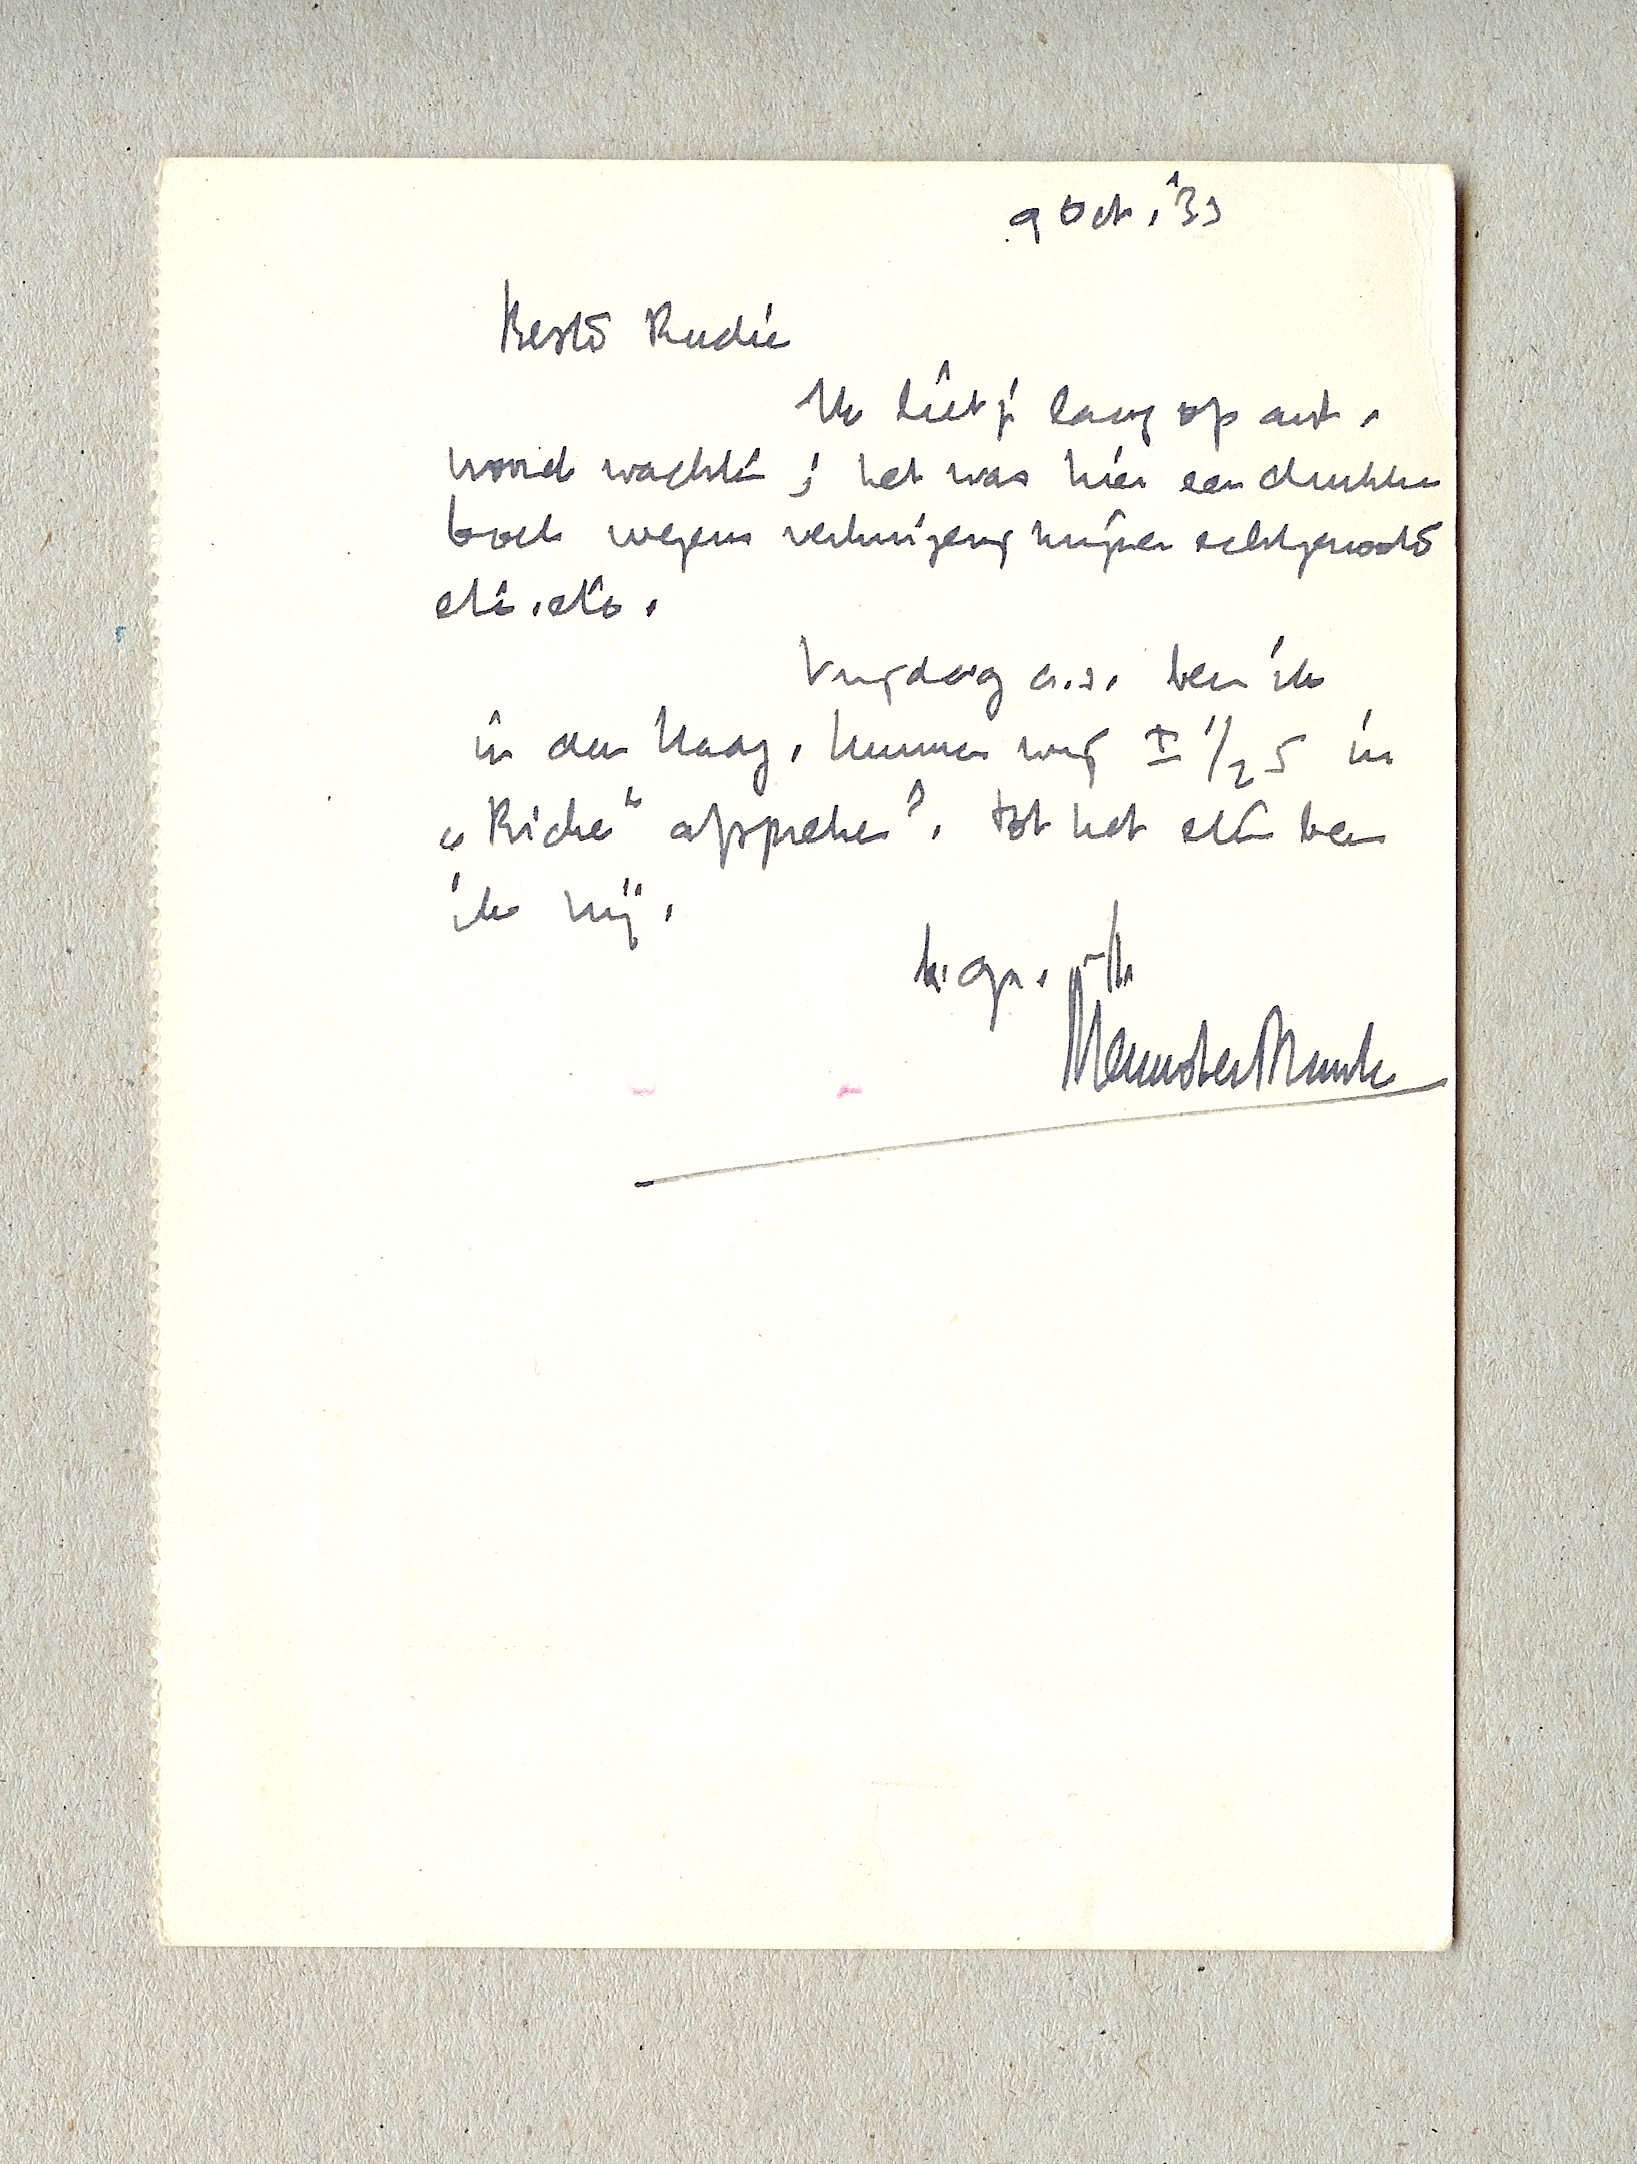 9 Oct. '33
Beste Rudie
Ik liet je lang op ant-
woord wachten; het was hier een drukke
boel wegens verhuizing mijner echtgenoote
etc. etc.
Vrijdag a.s. ben ik
in den Haag. Kunnen wij ± 1/2 5 in
„Riche" afspreken? Tot het eten ben
ik vrij.
h. gr. je
Menno ter Braak